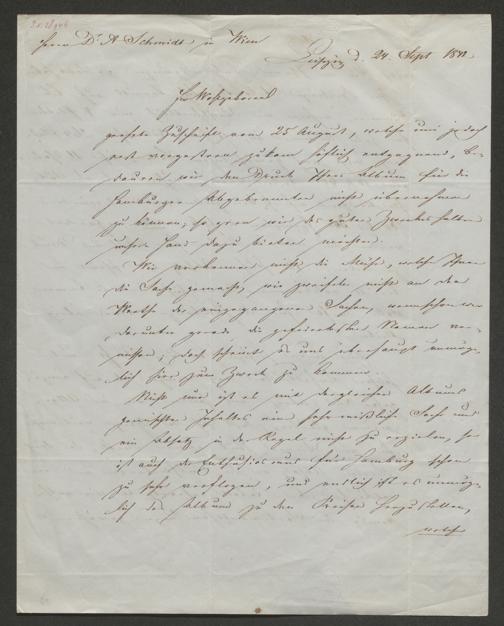 Herrn Dr A Schmidt in Wien
Leipzig d. 24. Sept 1842
Ew Wohlgeboren
geehrte Zuschrift vom 25 August, welche uns jedoch
erst vorgestern zukam höflich entgegnend, be-
dauern wir den Druck Ihres Album für die
Hamburger Abgebrannten nicht übernehmen
zu können, so gern wir des guten Zweckes halber
unsere Hand dazu bieten möchten.
Wir verkennen nicht die Mühe, welche Ihnen
die Sache gemacht, wir zweifeln nicht an dem
Werthe der eingegangenen Sachen, wennschon wir
darunter gerade die gefeiertsten Namen ver-
missen; doch scheint es uns überhaupt unmög-
lich hier zum Zweck zu kommen.
Nicht nur ist es mit dergleichen Albums
gemischten Inhaltes eine sehr mißliche Sache und
ein Absatz in der Regel nicht zu erzielen, so
ist auch der Enthusiasmus für Hamburg schon
zu sehr verflogen, und endlich ist es unmög-
lich das Album zu den Preisen herzustellen,
welche